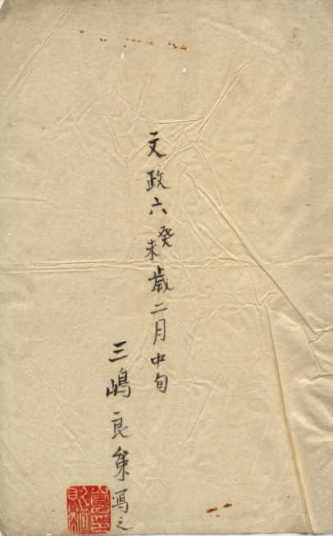 文政六癸未歳二月中旬
三嶋良寫之